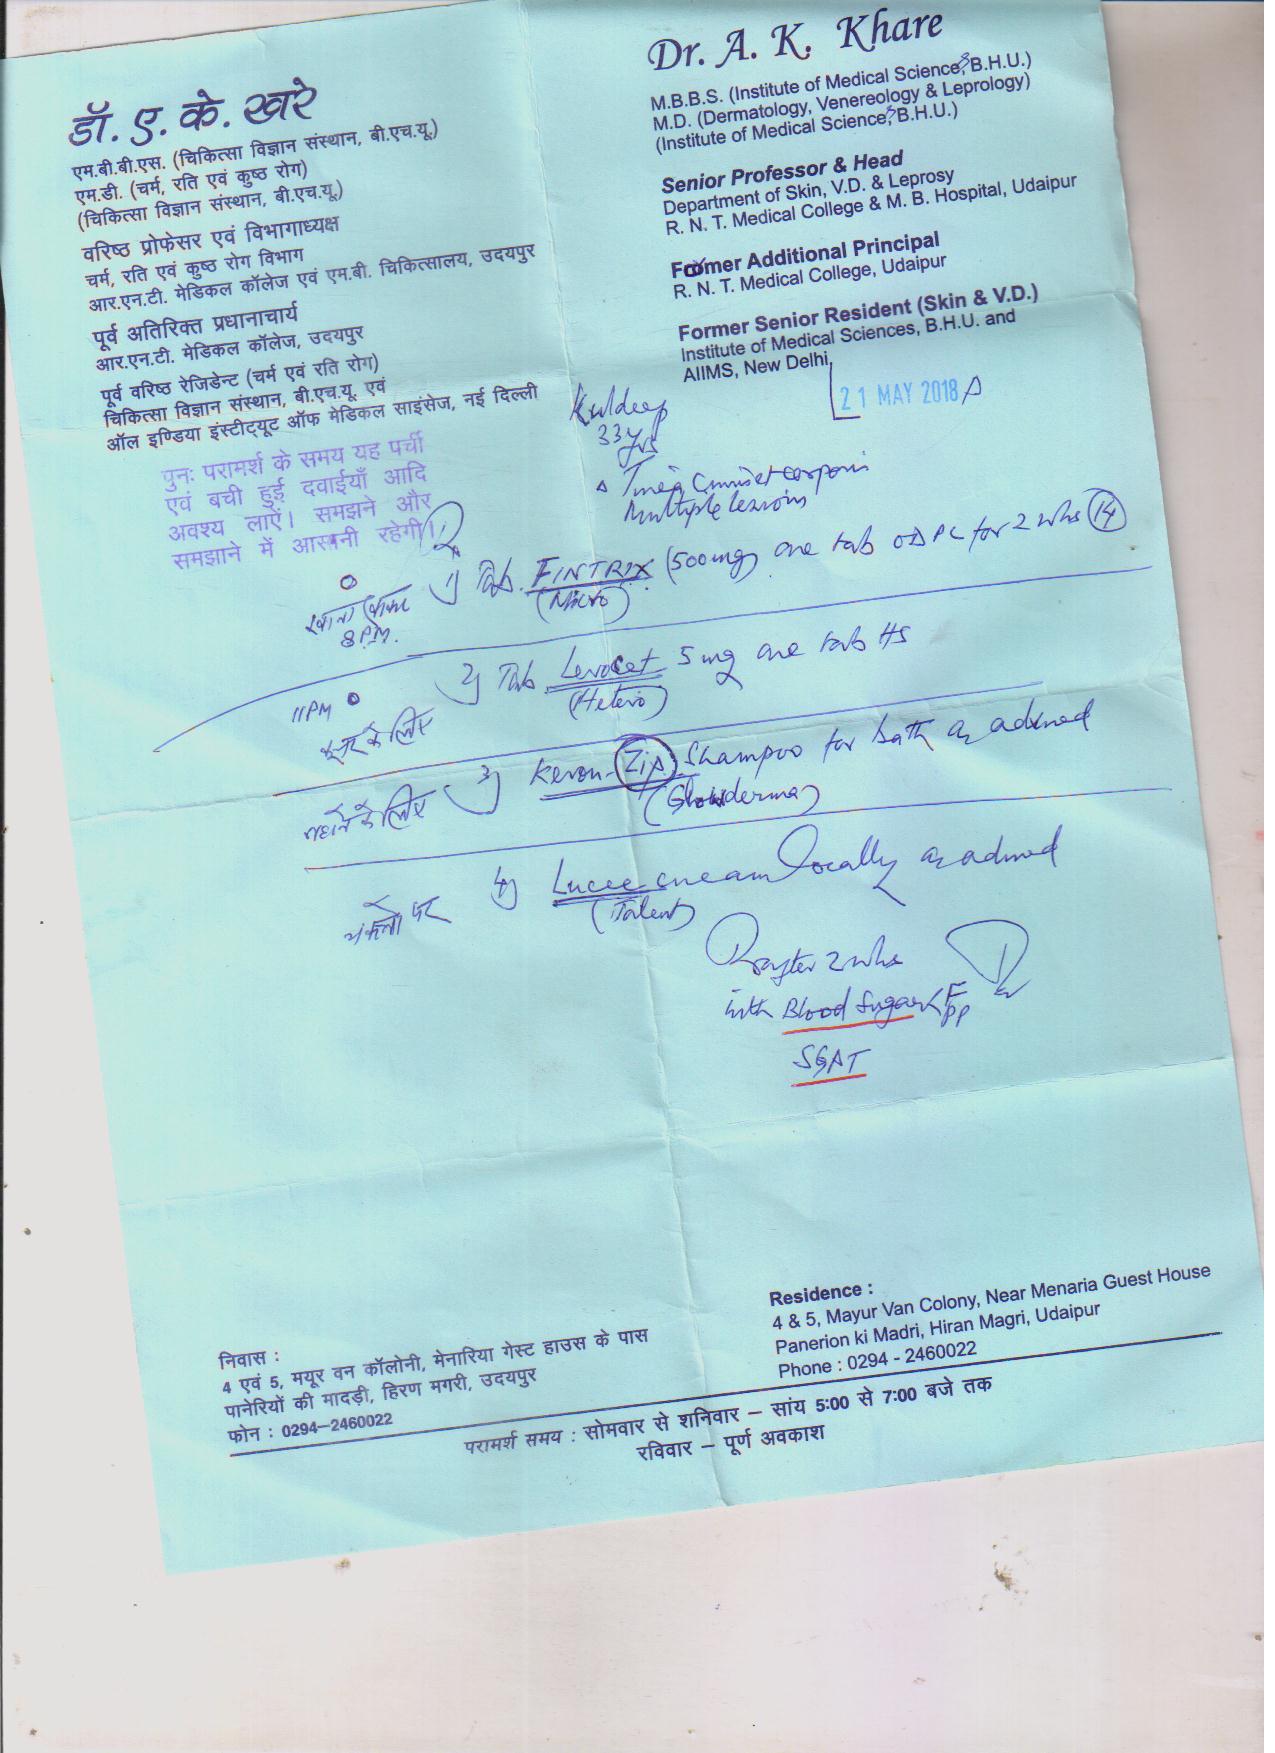 डॉ. ए. के. खरे
एम.बी.बी.एस. (चिकित्सा विज्ञान संस्थान, बी.एच.यू.)
एम.डी. (चर्म, रति एवं कुष्ठ रोग)
(चिकित्सा विज्ञान संस्थान, बी.एच.यू.)
वरिष्ठ प्रोफेसर एवं विभागाध्यक्ष
चर्म, रति एवं कुष्ठ रोग विभाग
आर.एन.टी. मेडिकल कॉलेज एवं एम.बी. चिकित्सालय, उदयपुर
पूर्व अतिरिक्त प्रधानाचार्य
आर.एन.टी. मेडिकल कॉलेज, उदयपुर
पूर्व वरिष्ठ रेजिडेन्ट (चर्म एवं रति रोग)
चिकित्सा विज्ञान संस्थान, बी.एच.यू. एवं
ऑल इण्डिया इंस्टीट्यूट ऑफ मेडिकल साइंसेज, नई दिल्ली
पुनः परामर्श के समय यह पर्ची
एवं बची हुई दवाईयाँ आदि
अवश्य लाऐं। समझने और
समझाने में आसानी रहेगी।
Dr. A. K. Khare
M.B.B.S. (Institute of Medical Sciences, B.H.U.)
M.D. (Dermatology, Venereology & Leprology)
(Institute of Medical Sciences, B.H.U.)
Senior Professor & Head
Department of Skin, V.D. & Leprosy
R. N. T. Medical College & M. B. Hospital, Udaipur
Former Additional Principal
R. N. T. Medical College, Udaipur
Former Senior Resident (Skin & V.D.)
Institute of Medical Sciences, B.H.U. and
AIIMS, New Delhi
21 MAY 2018
Kuldeep
33yrs
Δ Tinea Cruris et corporis
Multiple lesions
1) Tab. FINTRIX (500mg) one tab OD PC for 2 wks (14)
(Micro)
खाना खाकर
8 P.M.
2) Tab Levocet 5 mg one tab HS
(Hetero)
11 PM
के लिए
3) Keron-Zip Shampoo for bath as advised
(Glowderma)
नहाने के लिए
4) Lucee cream locally as advised
(Talent)
पर
after 2 wks
with Blood Sugar F
PP
SGPT
निवास :
4 एवं 5, मयूर वन कॉलोनी, मेनारिया गेस्ट हाउस के पास
पानेरियों की मादड़ी, हिरण मगरी, उदयपुर
फोन : 0294–2460022
Residence :
4 & 5, Mayur Van Colony, Near Menaria Guest House
Panerion ki Madri, Hiran Magri, Udaipur
Phone : 0294 - 2460022
परामर्श समय : सोमवार से शनिवार – सांय 5:00 से 7:00 बजे तक
रविवार – पूर्ण अवकाश